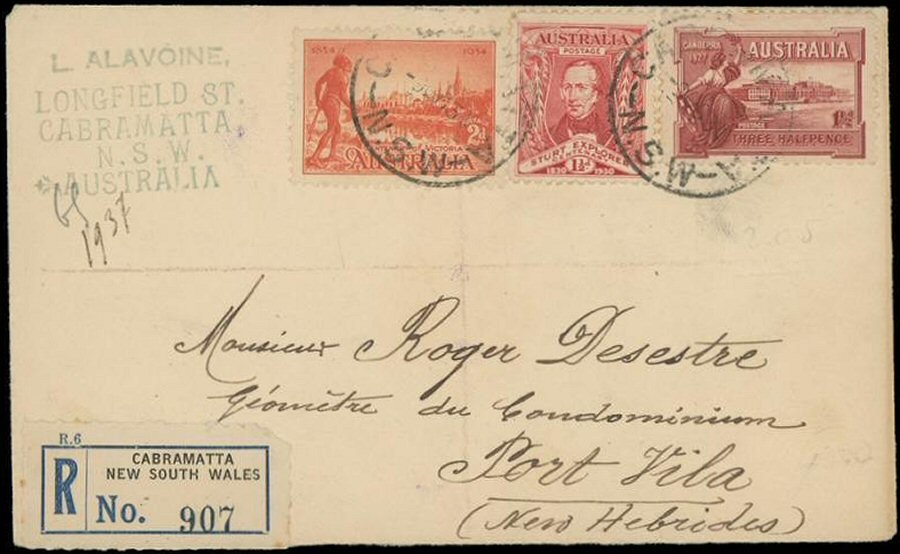 L. ALAVOINE,
LONGFIELD ST.
CABRAMATTA
N.S.W.
AUSTRALIA
1937
1834 1934
2d
VICTORIA
AUSTRALIA
AUSTRALIA
POSTAGE
STURT EXPLORER
1½d
1830 1930
CANBERRA
1927
AUSTRALIA
POSTAGE
1½d
THREE HALFPENCE
N.S.W-A
N.S.W-A
Monsieur Roger Desestre
Géomètre du Condominium
Port Vila
(New Hebrides)
R.6
R
CABRAMATTA
NEW SOUTH WALES
No. 907